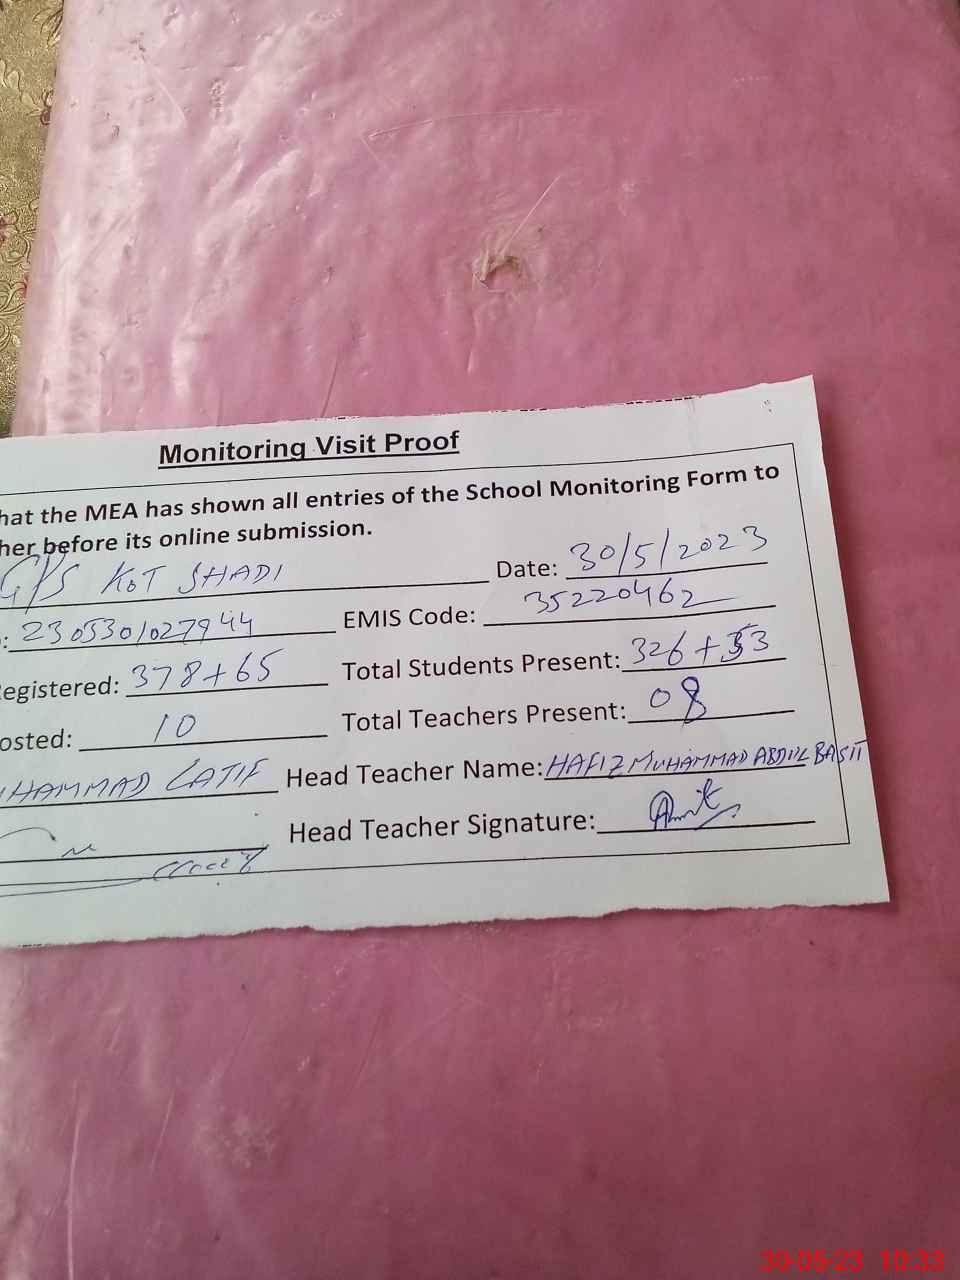 Monitoring Visit Proof
hat the MEA has shown all entries of the School Monitoring Form to
her before its online submission.
GPS KOT SHADI Date: 30/5/2023
: 230530/027944 EMIS Code: 35220462
egistered: 378+65 Total Students Present: 326+53
osted: 10 Total Teachers Present: 08
UHAMMAD LATIF Head Teacher Name: HAFIZ MUHAMMAD ABDUL BASIT
Head Teacher Signature:
30-05-23 10:33